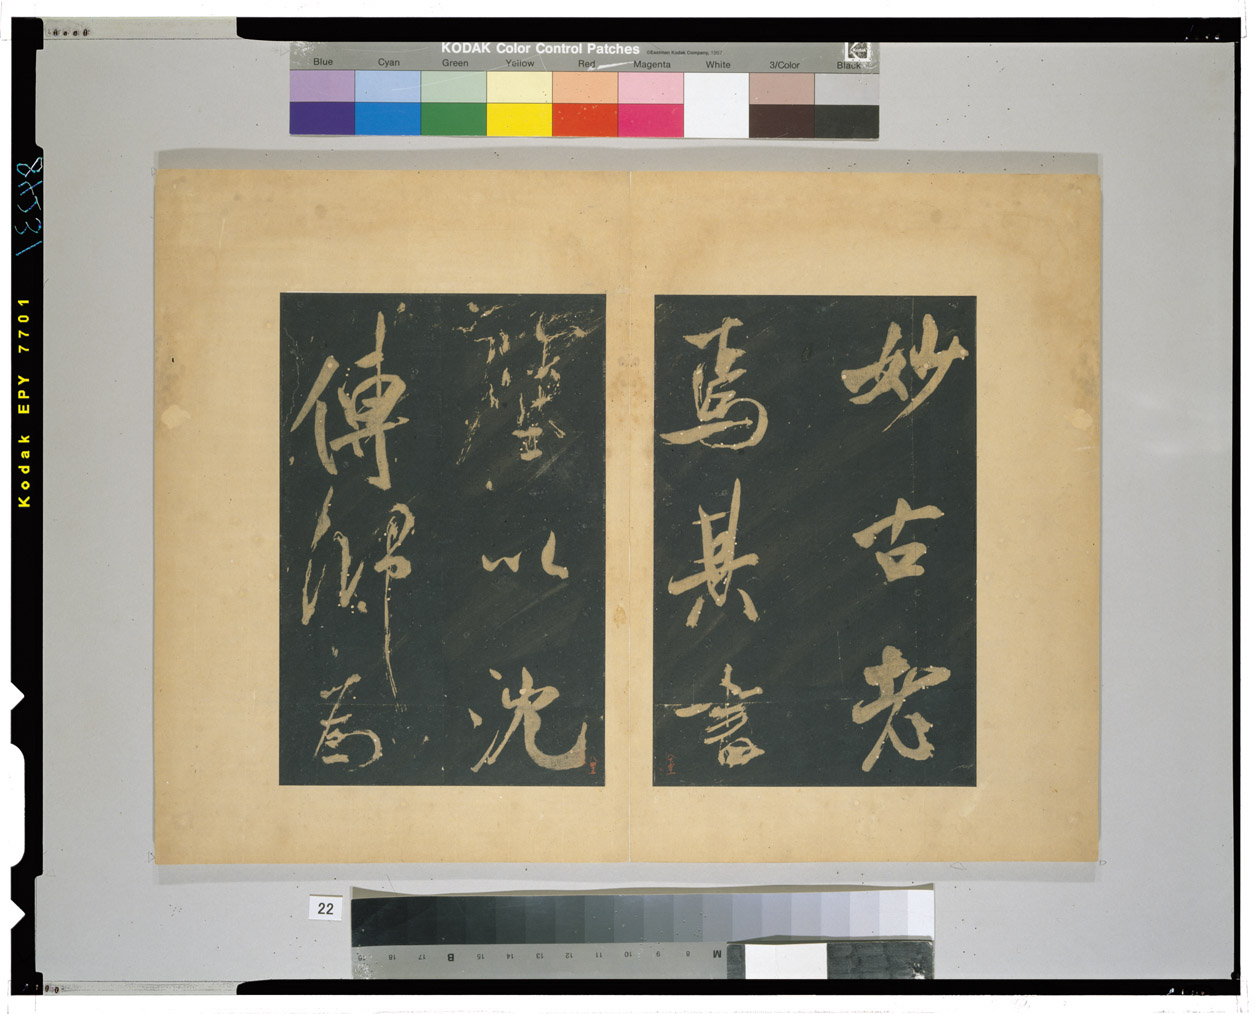 KODAK Color Control Patches
©Eastman Kodak Company, 1997
Blue Cyan Green Yellow Red Magenta White 3/Color Black
Kodak EPY 7701
妙古老
焉其書
壁以沈
傳師為
22
M 8 9 10 11 12 13 14 15 B 17 18 19